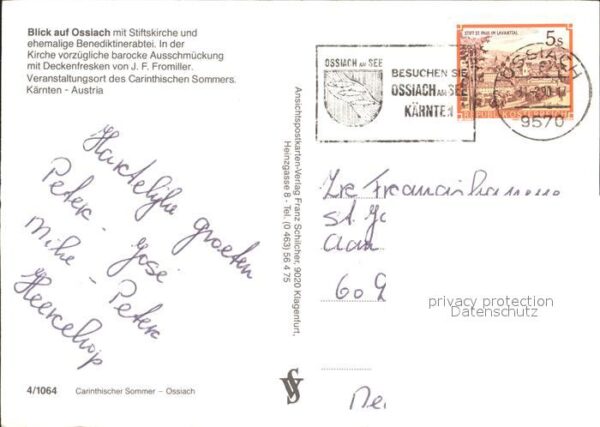 Blick auf Ossiach mit Stiftskirche und
ehemalige Benediktinerabtei. In der
Kirche vorzügliche barocke Ausschmückung
mit Deckenfresken von J. F. Fromiller.
Veranstaltungsort des Carinthischen Sommers.
Kärnten - Austria
Hartelijke groeten
Peter - José
Mike - Peter
4/1064
Carinthischer Sommer – Ossiach
Ansichtspostkarten-Verlag Franz Schilcher, 9020 Klagenfurt,
Heinzgasse 8 - Tel. (0 463) 56 4 75
OSSIACH AM SEE
BESUCHEN SIE
OSSIACH AM SEE
KÄRNTEN
STIFT ST. PAUL IM LAVANTTAL
5s
REPUBLIK ÖSTERREICH
OSSIACH
9570
Zre
St. Jo
Aan
609
privacy protection
Datenschutz
Ne